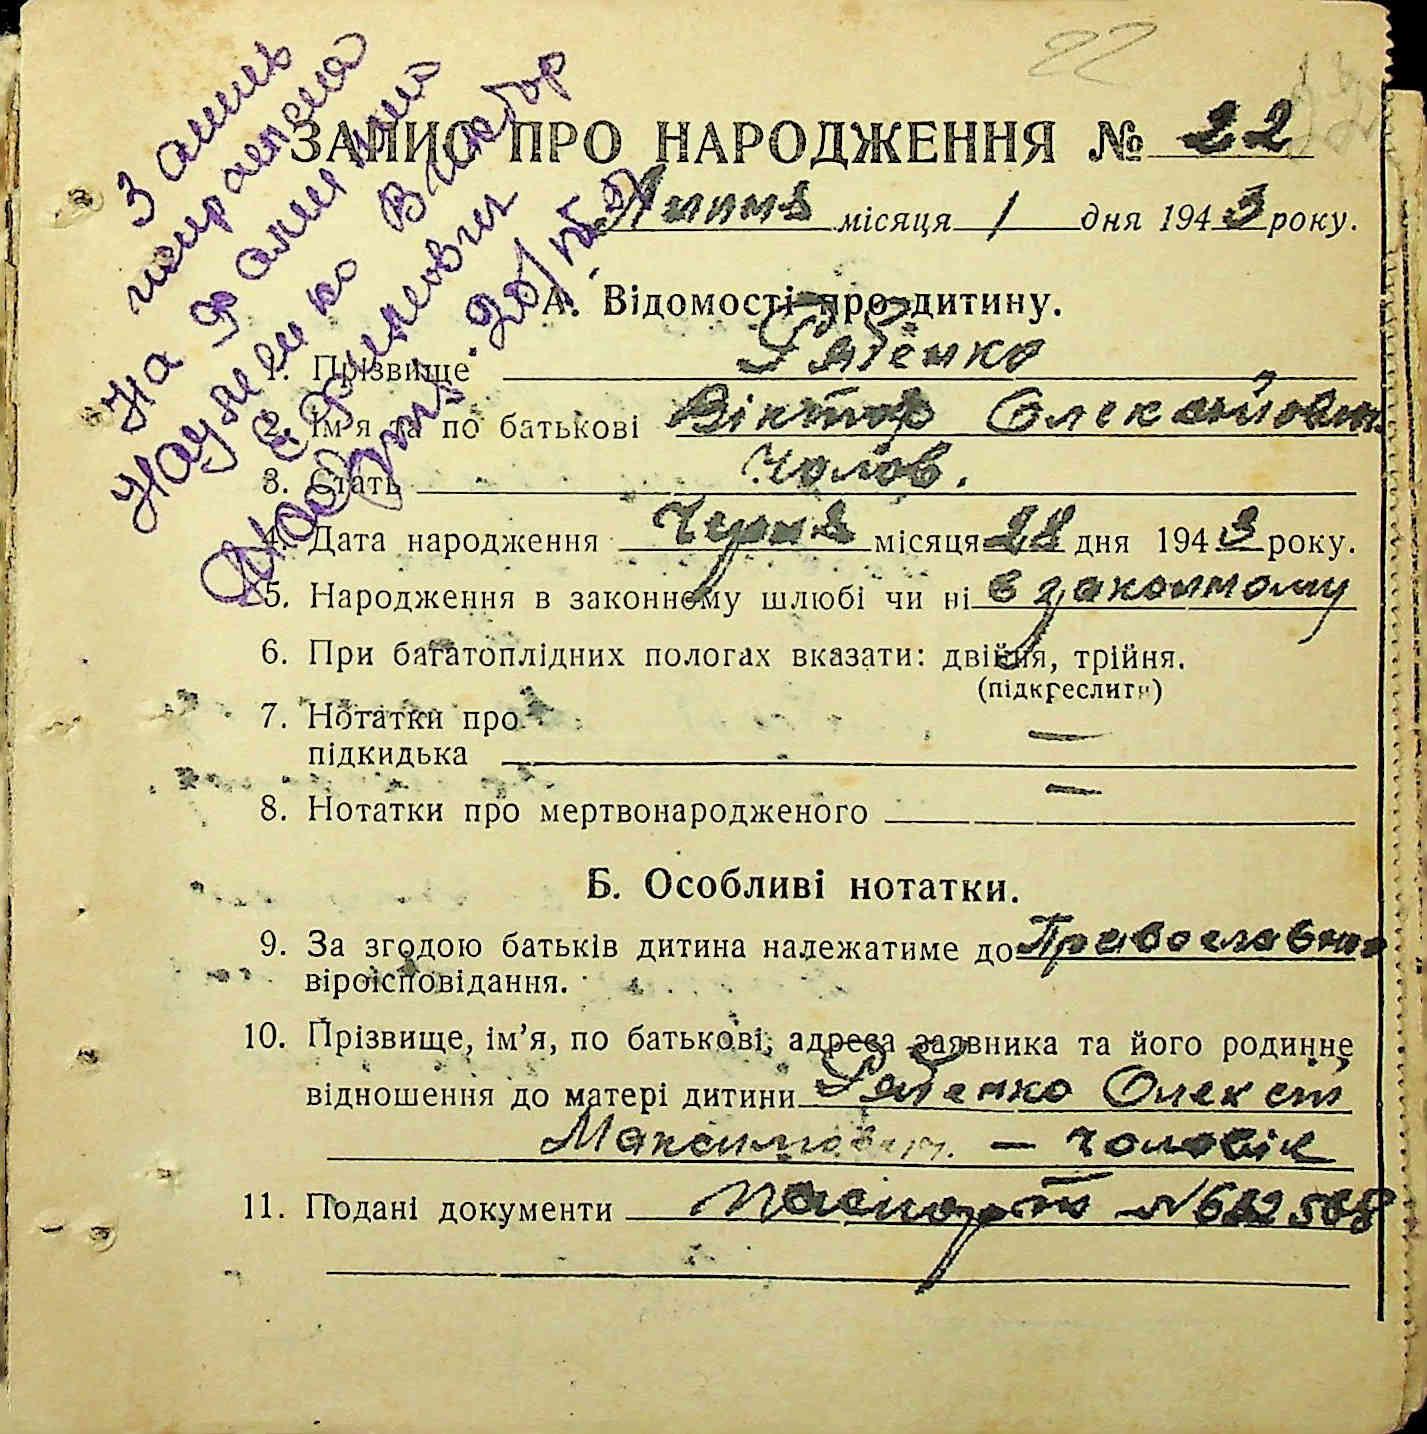 22
ЗАПИС ПРО НАРОДЖЕННЯ № 22
Липня місяця 1 дня 1943 року.
А. Відомості про дитину.
1. Прізвище Рябенко
2. Ім'я та по батькові Віктор
3. Стать Чолов.
4. Дата народження Червня місяця 28 дня 1943 року.
5. Народження в законному шлюбі чи ні в законному
6. При багатоплідних пологах вказати: двійня, трійня.
(підкреслити)
7. Нотатки про
підкидька —
8. Нотатки про мертвонародженого —
Б. Особливі нотатки.
9. За згодою батьків дитина належатиме до
віроісповідання.
10. Прізвище, ім'я, по батькові, адреса заявника та його родинне
відношення до матері дитини Рябенко
— чоловік
11. Подані документи паспорт №
З
на
Виктор